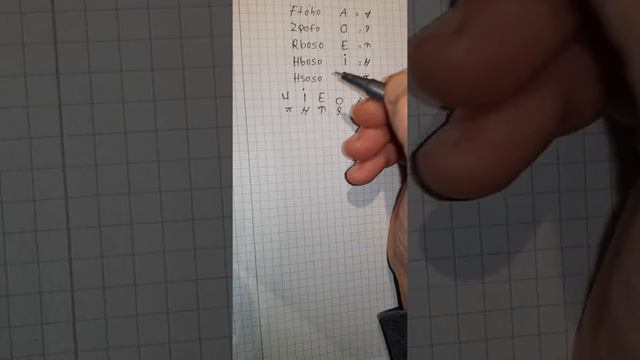 Ftoho A = 
Zpofo O = 
Rboso E = π
Hboso i = H
Hsoso
U i E O
π H